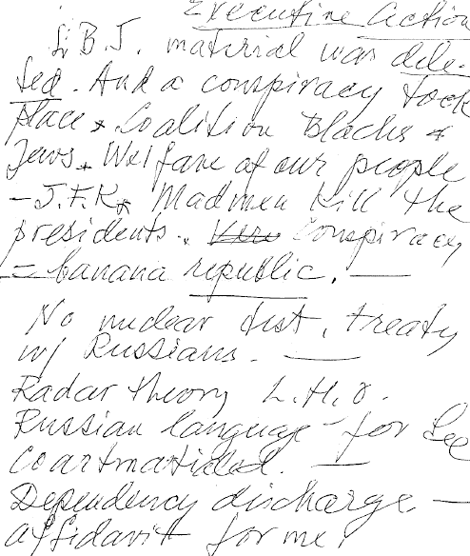 Executive Action
L.B.J. material was dele-
ted. And a conspiracy took
place * Coalition Blacks +
Jews * Welfare of our people
- J.F.K * Madmen kill the
presidents. Conspiracy
= banana republic. —
No nuclear test, treaty
w/ Russians. —
Radar theory L.H.O.
Russian language - for Lee
Coartmatided. —
Dependency discharge —
affidavit for me.